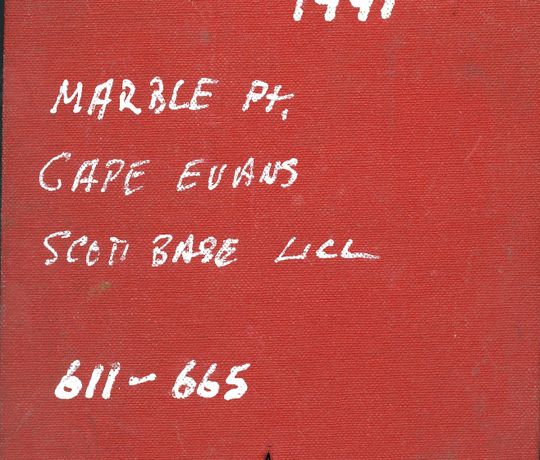 1991
MARBLE Pt.
CAPE EVANS
SCOTT BASE
611-665